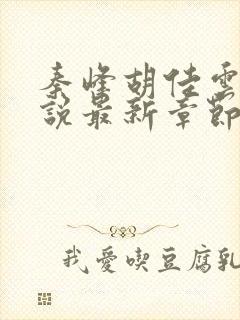 秦峰胡佳雲
說最新章節
我愛喫豆腐乳